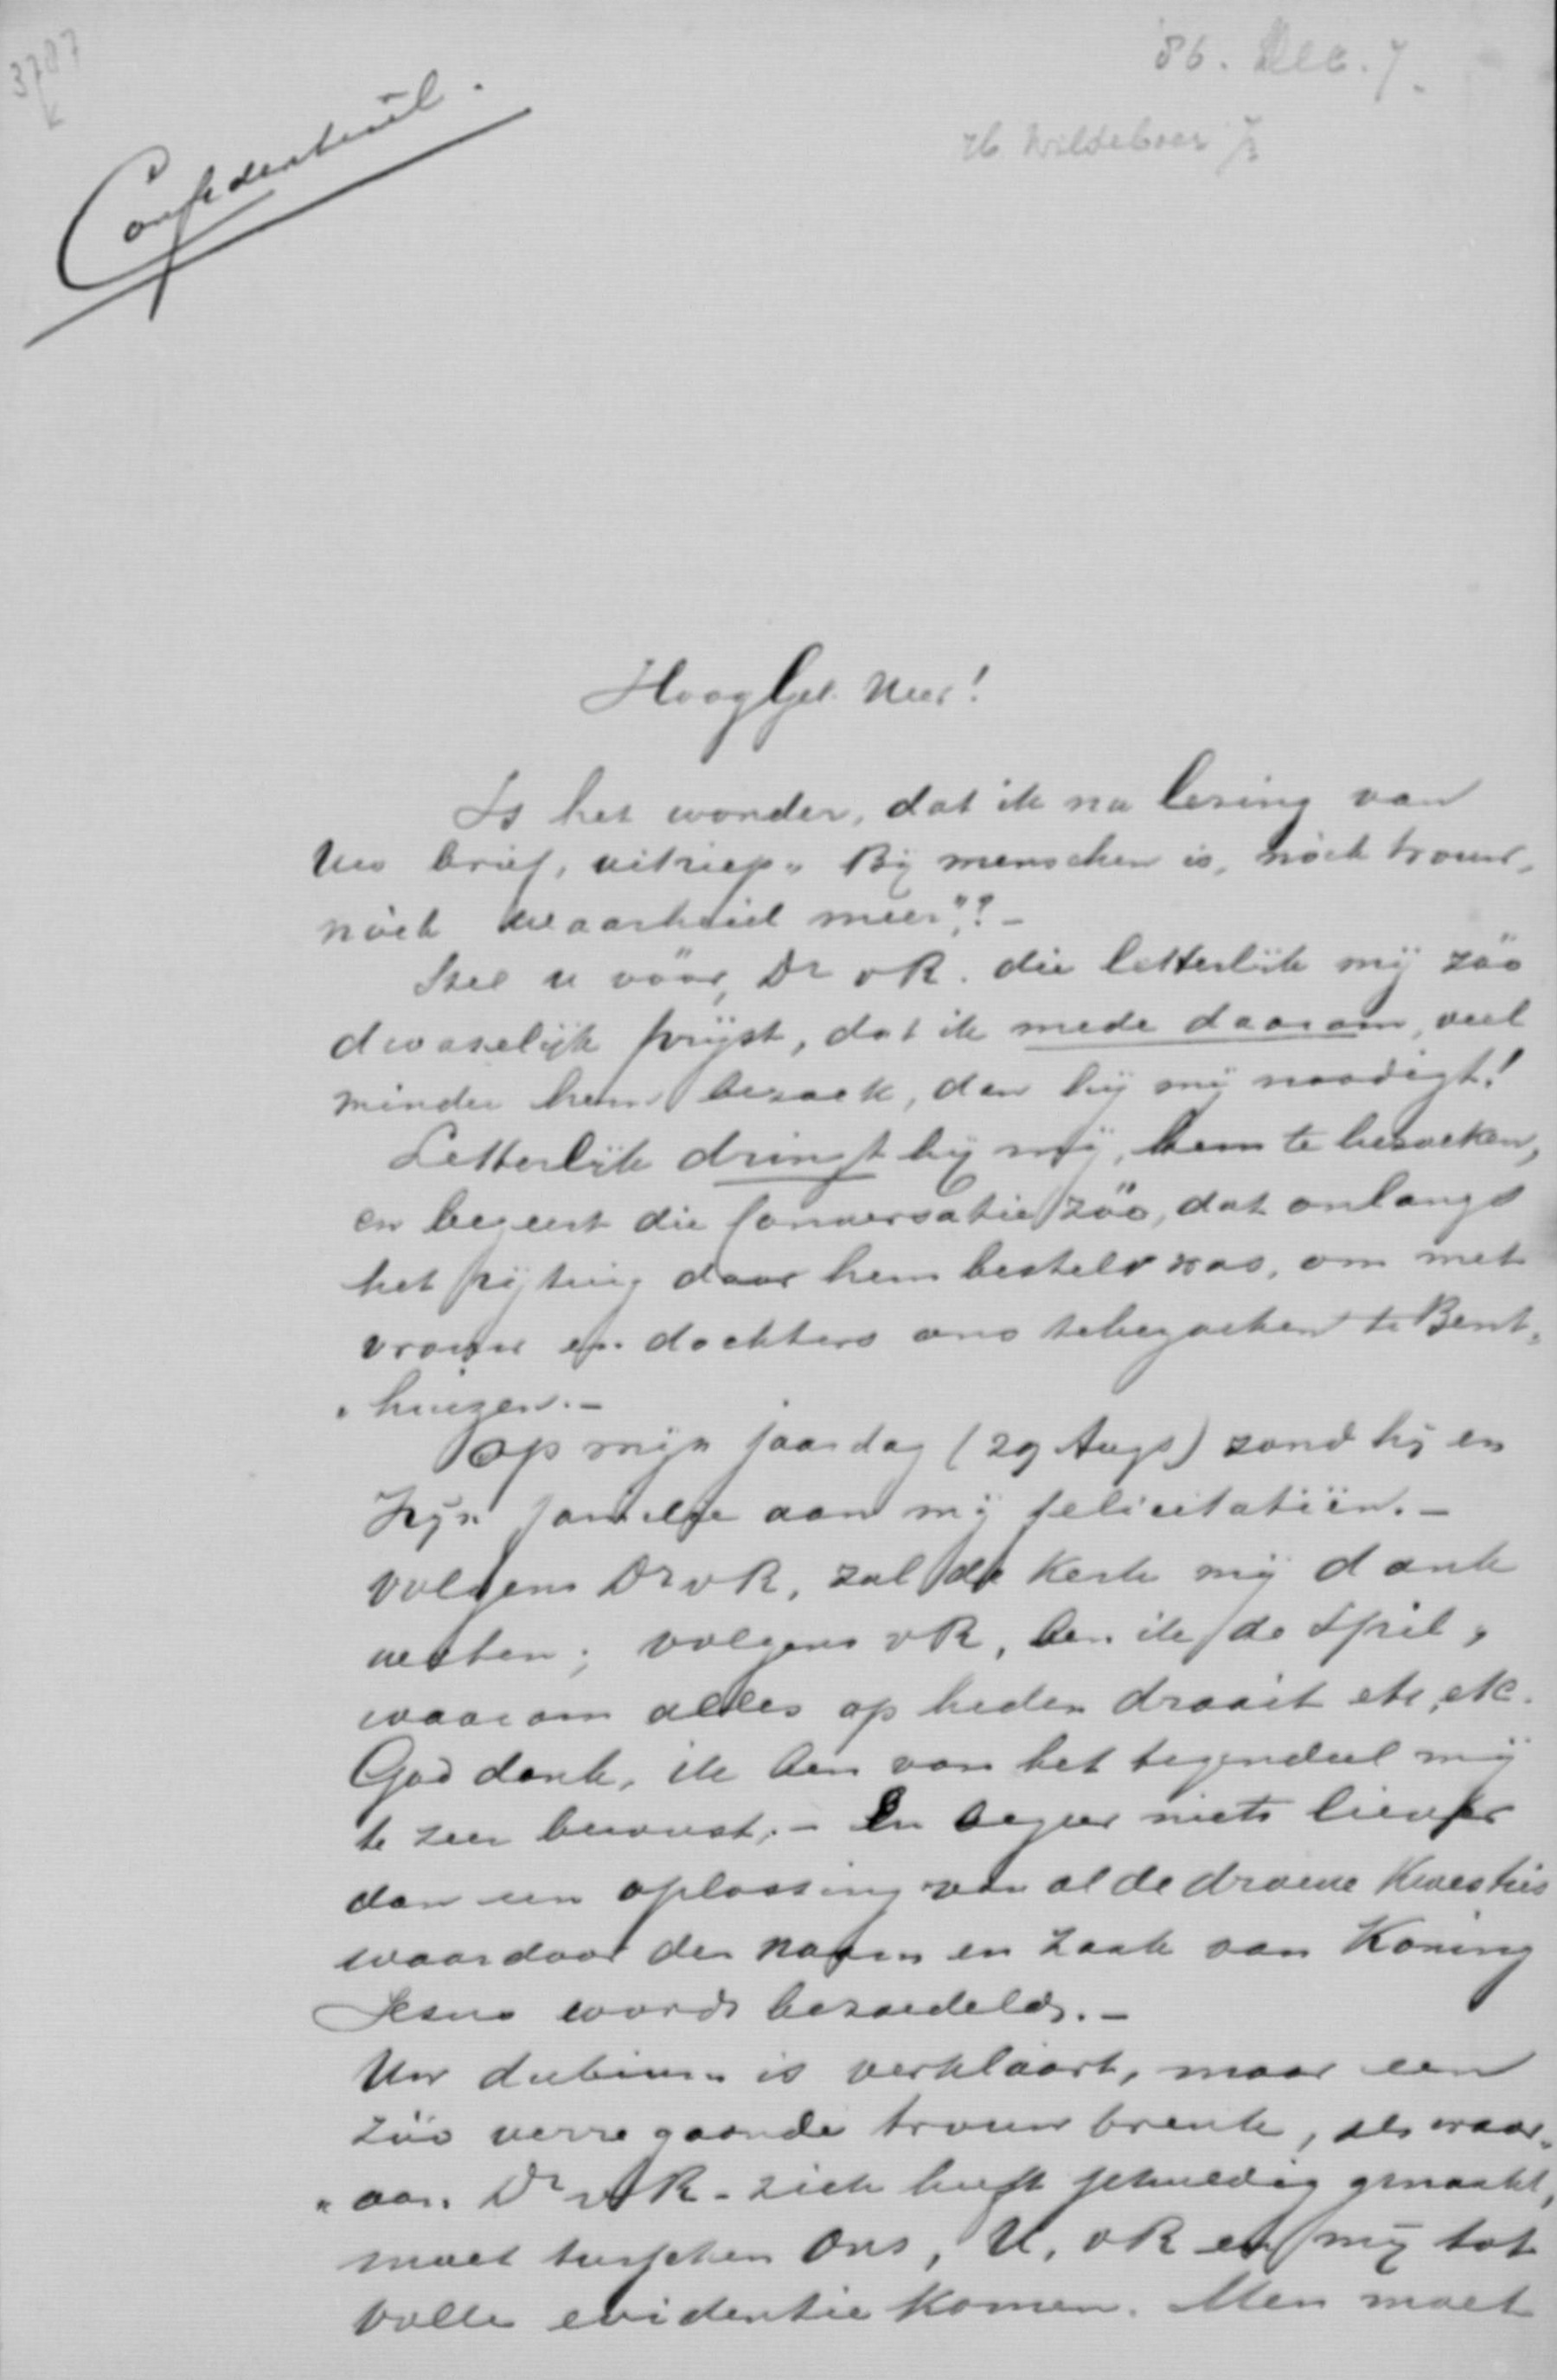 3787
'86. Dec. 7.
H. Wildeboer Jz
Confidentieel.
HoogGel. Heer!
Is het wonder, dat ik na lezing van
Uw brief, uitriep „Bij menschen is, nòch trouw,
nòch waarheid meer"? –
Stel u vóór, Dr vR. die letterlijk mij zóó
dwaselijk prijst, dat ik mede daarom, veel
minder hem bezoek, dan hij mij noodigt!
Letterlijk dringt hij mij, hem te bezoeken,
en begeert die conversatie zóó, dat onlangs
het rijtuig door hem besteld was, om met
vrouw en dochters ons te bezoeken te Bent„
„huizen. –
Op mijn jaardag (29 Augs) zond hij en
Zijn familje aan mij felicitatiën. –
Volgens Dr vR, zal de Kerk mij dank
weten; volgens vR, ben ik de Spil,
waarom alles op heden draait etc, etc.
God dank, ik ben van het tegendeel mij
te zeer bewust; – En begeer niets liever
dan een oplossing van al de droeve Kwesties
waardoor den naam en zaak van Koning
Jesus wordt bezoedeld. –
Uw dubium is verklaart, maar een
zóó verre gaande trouwbreuk, als waar„
„aan Dr vR – zich heeft schuldig gemaakt,
moet tusschen Ons, U, vR en mij tot
volle evidentie komen. Men moet